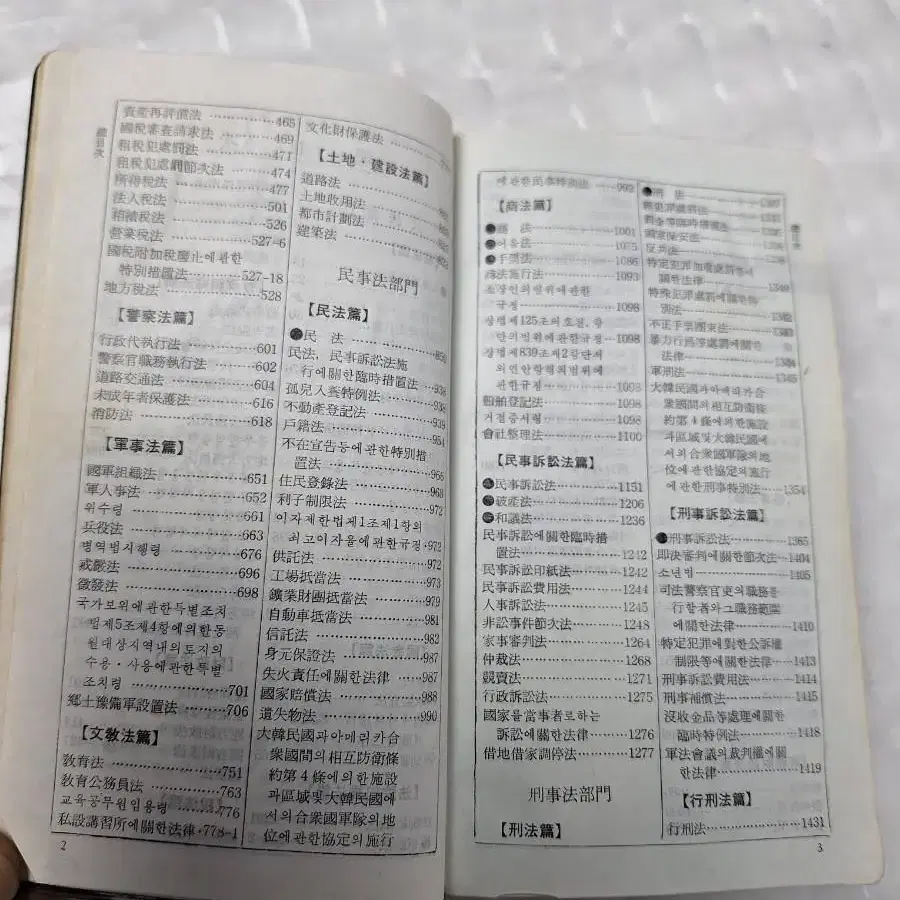 總目次
資產再評價法 465
國稅審査請求法 469
租稅犯處罰法 471
租稅犯處罰節次法 474
所得稅法 477
法人稅法 501
相續稅法 526
營業稅法 527-6
國稅附加稅廢止에관한
特別措置法 527-18
地方稅法 528
【警察法篇】
行政代執行法 601
警察官職務執行法 602
道路交通法 604
未成年者保護法 616
消防法 618
【軍事法篇】
國軍組織法 651
軍人事法 652
위수령 661
兵役法 663
병역법시행령 676
戒嚴法 696
徵發法 698
국가보위에관한특별조치
법제5조제4항에의한동
원대상지역내의토지의
수용·사용에관한특별
조치령 701
鄕土豫備軍設置法 706
【文敎法篇】
敎育法 751
敎育公務員法 763
교육공무원임용령 776
私設講習所에關한法律 778-1
2
文化財保護法
【土地·建設法篇】
道路法
土地收用法
都市計劃法
建築法
民事法部門
【民法篇】
民 法 850
民法, 民事訴訟法施
行에關한臨時措置法 938
孤兒入養特例法 938
不動產登記法 939
戶籍法 954
不在宣告등에관한特別措
置法 966
住民登錄法 968
利子制限法 972
이자제한법제1조제1항의
최고이자율에관한규정 972
供託法 972
工場抵當法 973
鑛業財團抵當法 979
自動車抵當法 981
信託法 982
身元保證法 987
失火責任에關한法律 987
國家賠償法 988
遺失物法 990
大韓民國과아메리카合
衆國間의相互防衛條
約第4條에의한施設
과區域및大韓民國에
서의合衆國軍隊의地
位에관한協定의施行
에관한民事特別法 992
【商法篇】
商 法 1001
어음法 1075
手票法 1086
商法施行法 1093
소상인의범위에관한
규정 1098
상법제125조의호실, 창
안의범위에관한규정 1098
상법제839조제2항단서
의연안항행의범위에
관한규정 1098
船舶登記法 1098
거절증서령 1098
會社整理法 1100
【民事訴訟法篇】
民事訴訟法 1151
破產法 1206
和議法 1236
民事訴訟에關한臨時措
置法 1242
民事訴訟印紙法 1242
民事訴訟費用法 1244
人事訴訟法 1245
非訟事件節次法 1248
家事審判法 1264
仲裁法 1268
競賣法 1271
行政訴訟法 1275
國家를當事者로하는
訴訟에關한法律 1276
借地借家調停法 1277
刑事法部門
【刑法篇】
總目次
刑 法
輕犯罪處罰法
國家保安法
反共法
特定犯罪加重處罰等에
關한法律
特殊犯罪處罰에關한特
別法
不正手票團束法
暴力行爲等處罰에關한
法律
軍刑法
大韓民國과아메리카合
衆國間의相互防衛條
約第4條에의한施設
과區域및大韓民國에
서의合衆國軍隊의地
位에관한協定의施行
에관한刑事特別法 1354
【刑事訴訟法篇】
刑事訴訟法 1365
即決審判에關한節次法 1404
소년법 1405
司法警察官吏의職務를
行할者와그職務範圍
에關한法律 1410
特定犯罪에對한公訴權
制限等에關한法律 1413
刑事訴訟費用法 1414
刑事補償法 1415
沒收金品等處理에關한
臨時特例法 1418
軍法會議의裁判權에關
한法律 1419
【行刑法篇】
行刑法 1431
3